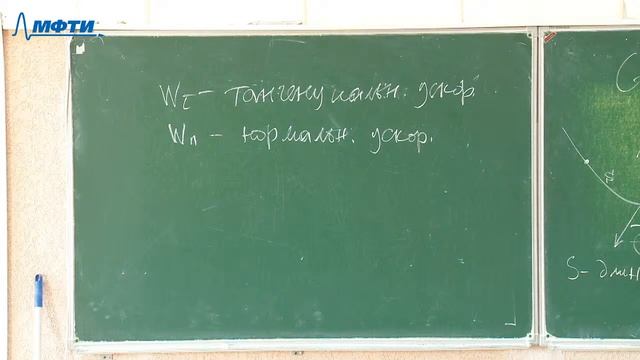 МФТИ
Wτ - тангенциальн. ускор.
Wn - нормальн. ускор.
S - длин